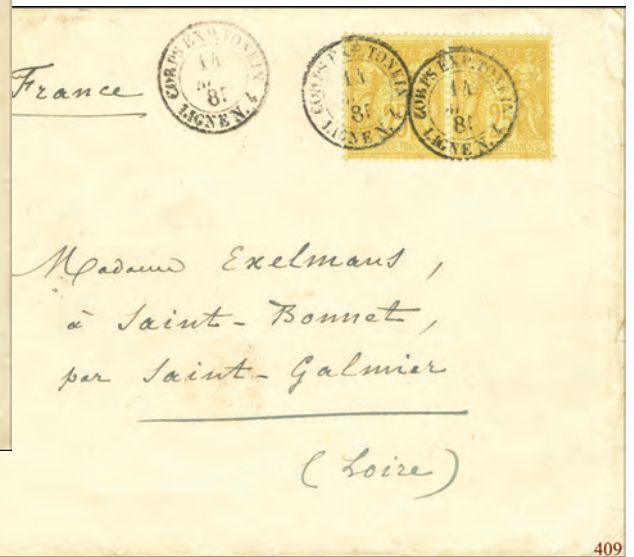 CORPS EXP. TONKIN
14
8
LIGNE N. 4
CORPS EXP. TONKIN
14
8
LIGNE N. 4
CORPS EXP. TONKIN
14
8
LIGNE N. 4
France
Madame Exelmans,
à Saint-Bonnet,
par Saint-Galmier
(Loire)
409